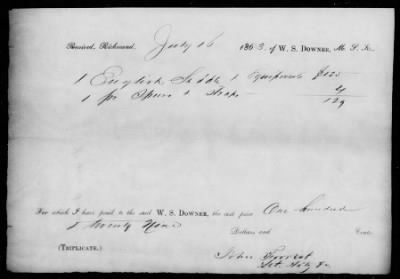 Received, Richmond, July 16 1863, of W. S. DOWNER, M. S. K.
1 English Saddle & Equipments $125
1 pr Spurs & Straps 4
129
For which I have paid to the said W. S. DOWNER, the cost price One hundred
& twenty Nine Dollars and Cents.
(TRIPLICATE.)
John Forrest